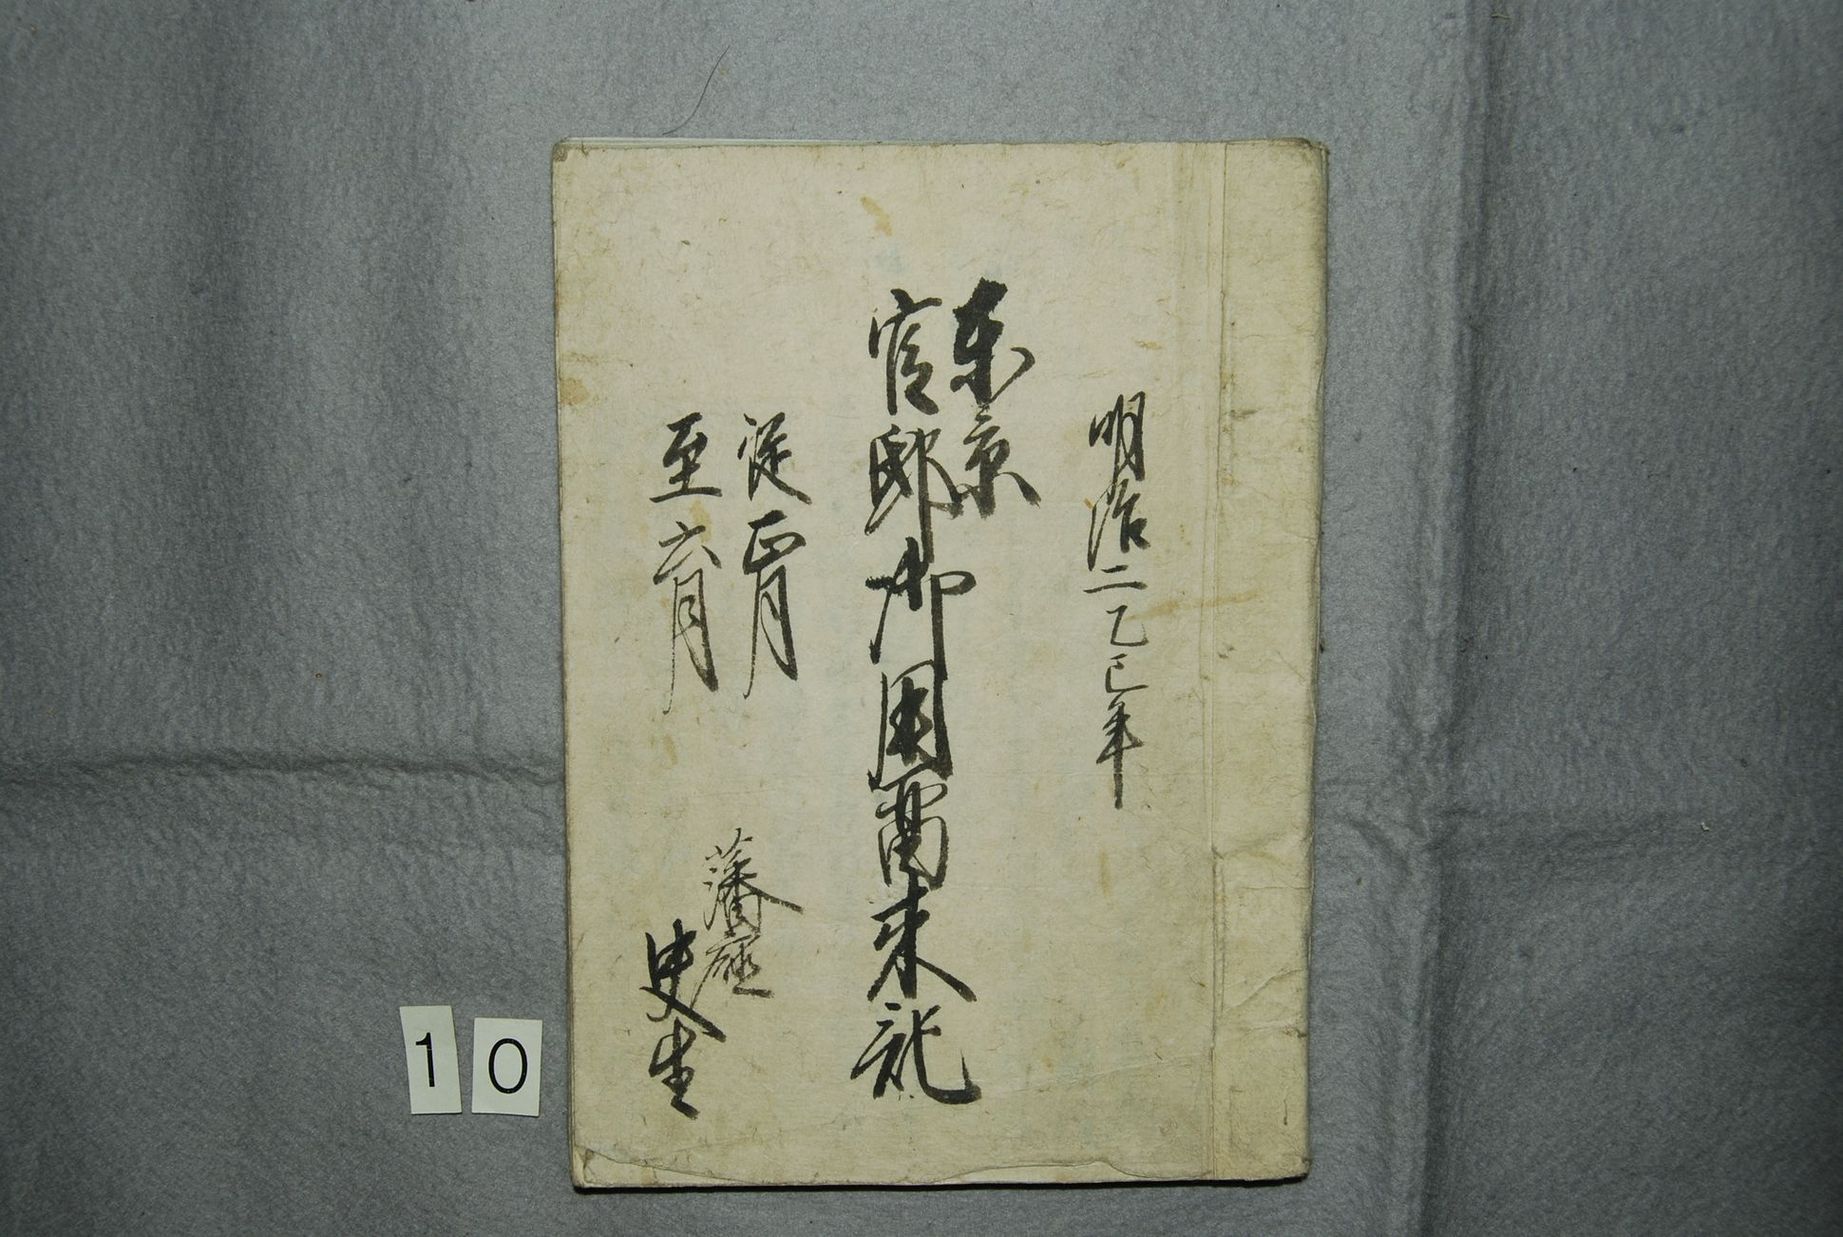 明治二己巳年
東京
官邸御用爾来記
従正月
至六月
藩廰
史生
10